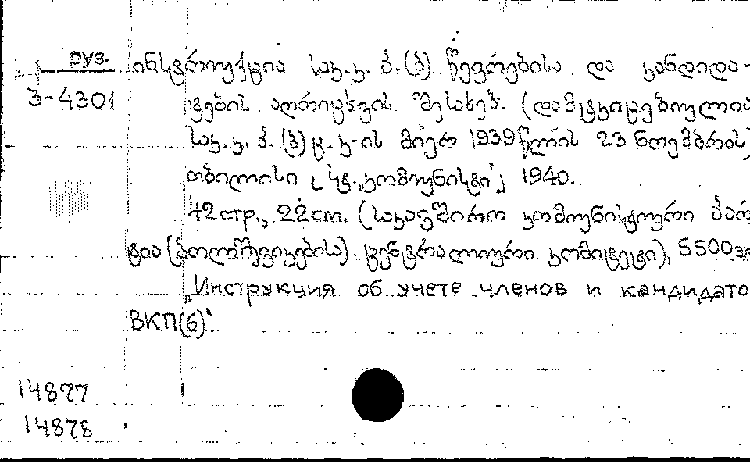 груз.
3-4301
ინსტრუქცია საკ. კ. პ. (ბ) წევრებისა და კანდიდა-
ტების აღრიცხვის შესახებ. (დამტკიცებულია
საკ. კ. პ. (ბ) ც. კ-ის მიერ 1939 წლის 23 ნოემბრის)
თბილისი, სტ. „კომუნისტი“, 1940.
42 стр., 22 cm. (საკავშირო კომუნისტური პარ
ტია (ბოლშევიკების) ცენტრალური კომიტეტი), 5500 эк
„Инструкция об учете членов и кандидато
ВКП(б)“
14877
14878